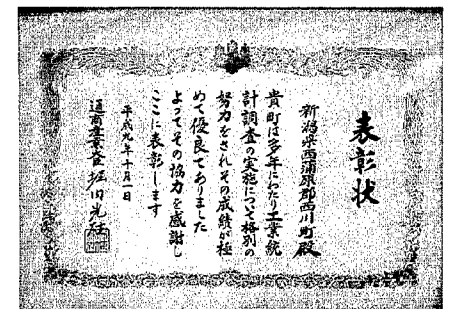 表彰状
新潟県西蒲原郡西川町殿
貴町は多年にわたり工業統
計調査の実施について格別の
努力をされその成績が極
めて優良でありました
よってその協力を感謝し
ここに表彰します
平成九年十月一日
通商産業大臣 堀内光雄